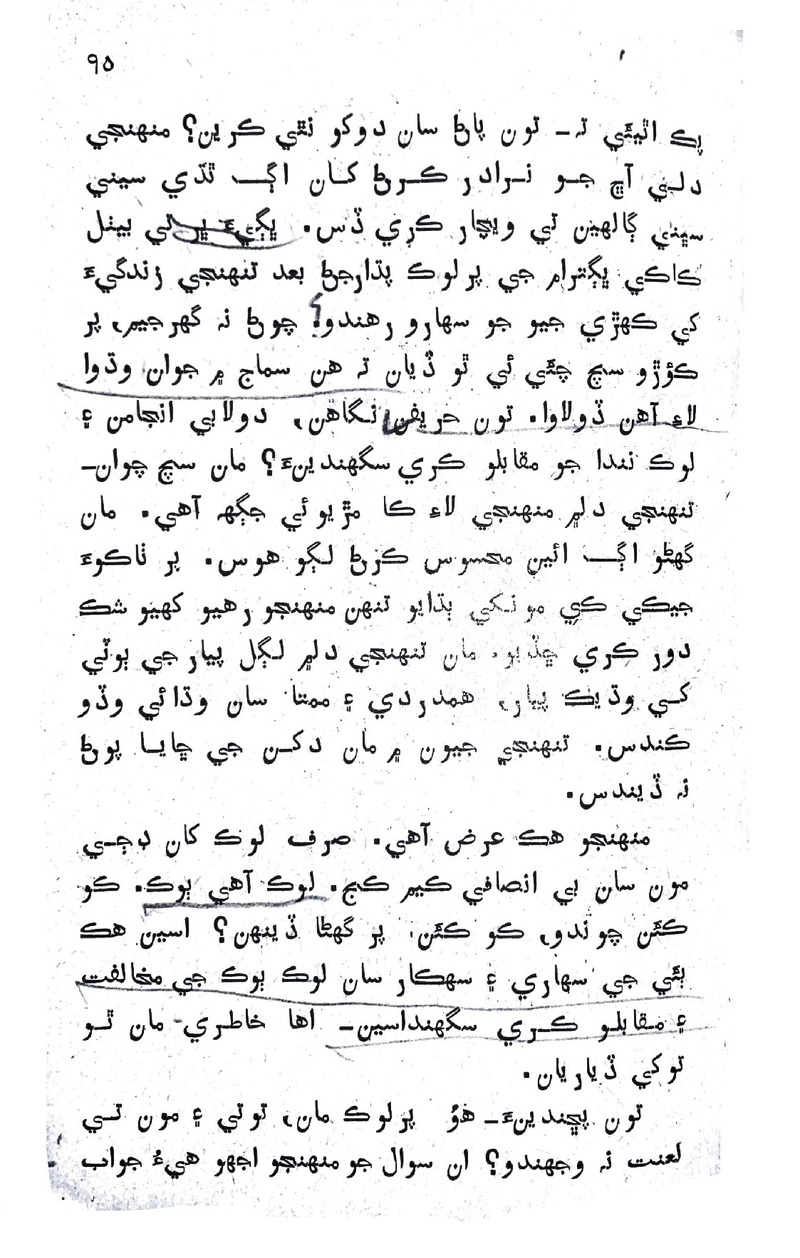 ٩٥
پڪ اٿيئي تہ۔ تون پاڻ سان دوکو نٿي ڪرين؟ منهنجي
دلي آڇ جو نرادر ڪرڻ کان اڳ ٿڌي سيني
سڀني ڳالهين تي ويچار ڪري ڏس. ڀڳيءَ ڀر تي بيٺل
ڪاڪي ڀڳترام جي پرلوڪ پڌارجڻ بعد تنهنجي زندگيءَ
کي ڪهڙي جيو جو سهارو رهندو؟ چوڻ نہ گهرجيم، پر
ڪوڙو سچ چئي ئي ٿو ڏيان تہ هن سماج ۾ جوان وڌوا
لاءِ آهن ڏولاوا. تون حريفن نگاهن، دولابي انجامن ۽
لوڪ نندا جو مقابلو ڪري سگهندينءَ؟ مان سچ چوان۔
تنهنجي دل۾ منهنجي لاءِ ڪا مڙيوئي جڳهہ آهي. مان
گهڻو اڳ ائين محسوس ڪرڻ لڳو هوس. پر ٺاڪوءَ
جيڪي ڪي مونکي ٻڌايو تنهن منهنجو رهيو کهيو شڪ
دور ڪري ڇڏيو. مان تنهنجي دل۾ لڳل پيار جي ٻوٽي
کي وڌيڪ پيار، همدردي ۽ ممتا سان وڌائي وڏو
ڪندس. تنهنجي جيون ۾ مان دکن جي ڇايا پوڻ
نہ ڏيندس.
منهنجو هڪ عرض آهي. صرف لوڪ کان ڊڄي
مون سان بي انصافي ڪيم ڪج. لوڪ آهي ٻوڪ. ڪو
ڪٿن چوندو، ڪو ڪٿن. پر گهڻا ڏينهن؟ اسين هڪ
ٻئي جي سهاري ۽ سهڪار سان لوڪ ٻوڪ جي مخالفت
۽ مقابلو ڪري سگهنداسين۔ اها خاطري مان ٿو
توکي ڏياريان.
تون پڇندينءَ۔ هوُ پرلوڪ مان، توتي ۽ مون تي
لعنت نہ وجهندو؟ ان سوال جو منهنجو اجهو هيءُ جواب